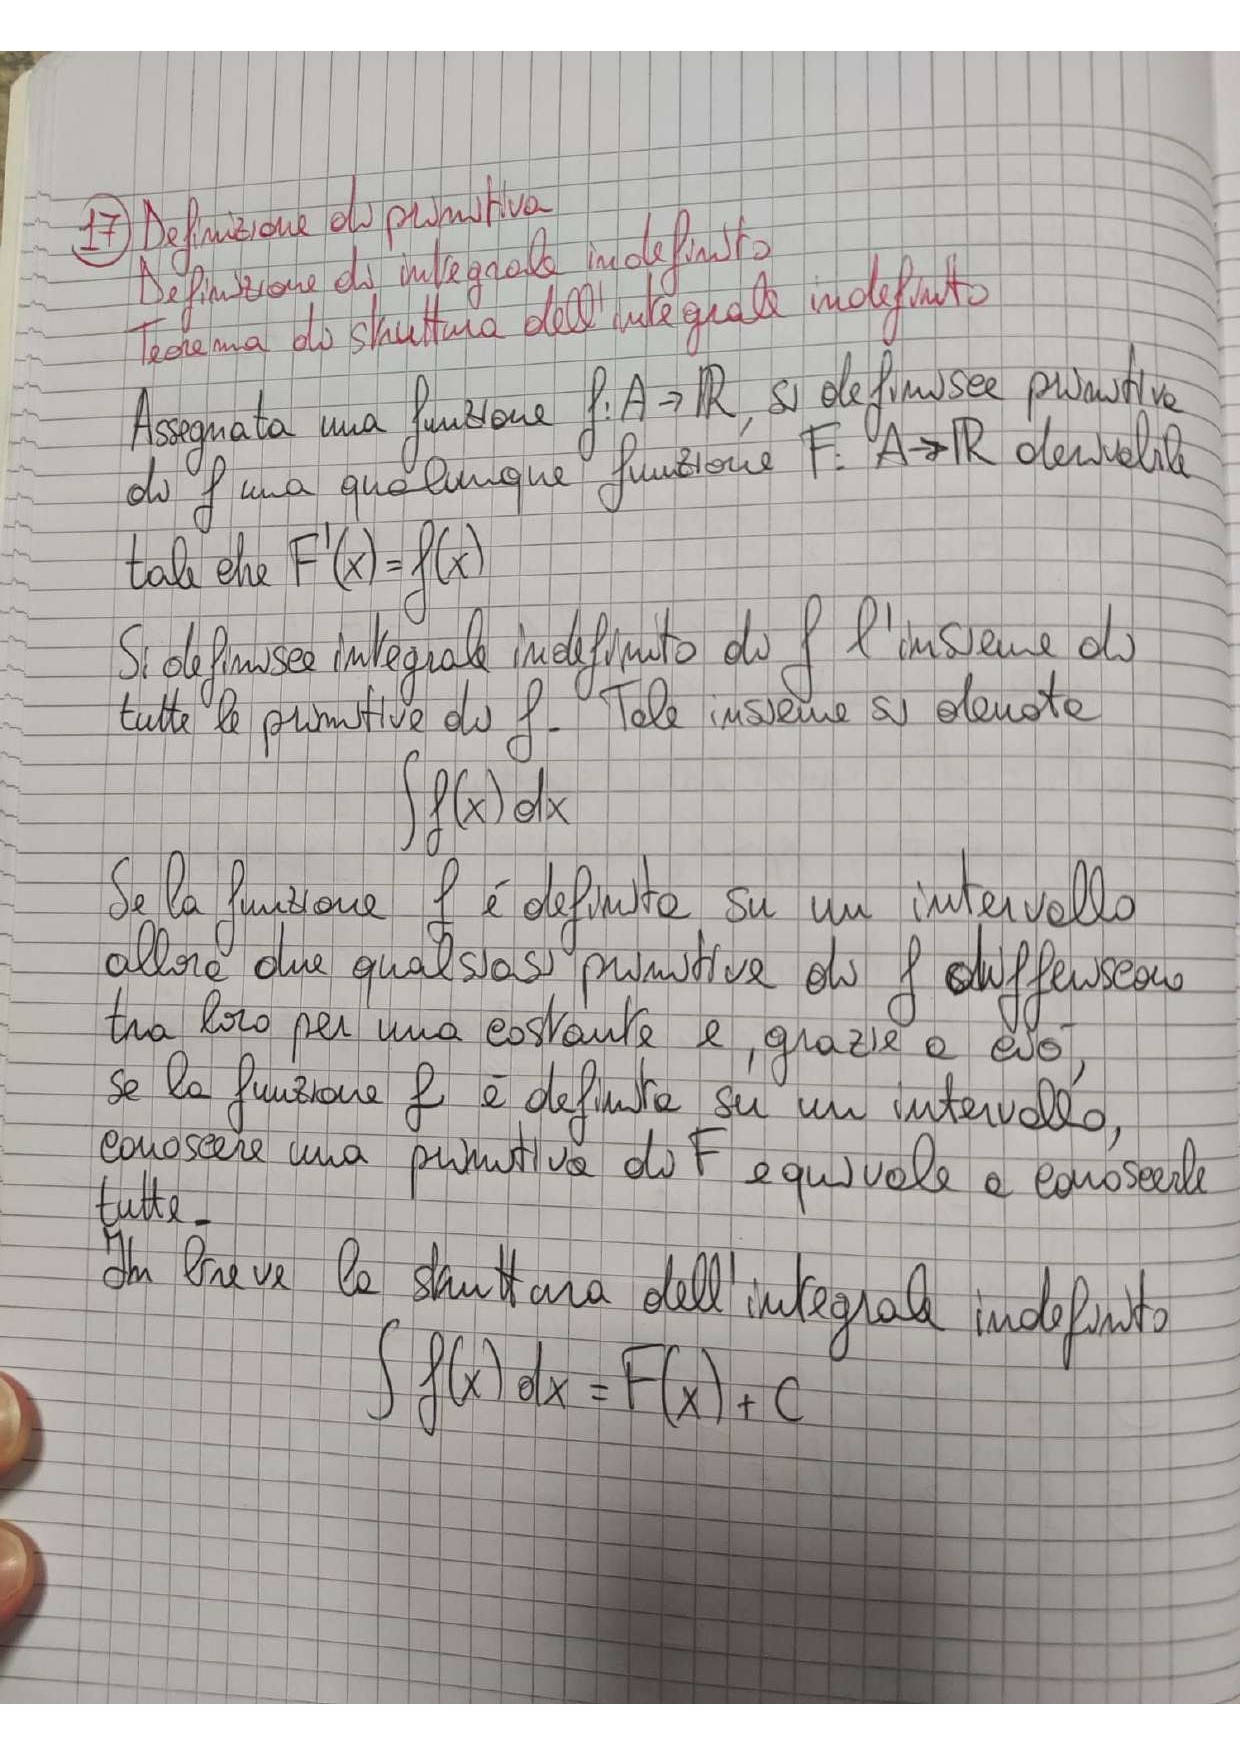 17) Definizione di primitiva
Definizione di integrale indefinito
Teorema di struttura dell'integrale indefinito
Assegnata una funzione f: A → ℝ, si definisce primitiva
di f una qualunque funzione F: A → ℝ derivabile
tale che F'(x) = f(x)
Si definisce integrale indefinito di f l'insieme di
tutte le primitive di f. Tale insieme si denota
∫ f(x) dx
Se la funzione f è definita su un intervallo
allora due qualsiasi primitive di f differiscono
tra loro per una costante e, grazie a ciò,
se la funzione f è definita su un intervallo,
conoscere una primitiva di F equivale a conoscerle
tutte.
In breve la struttura dell'integrale indefinito
∫ f(x) dx = F(x) + C